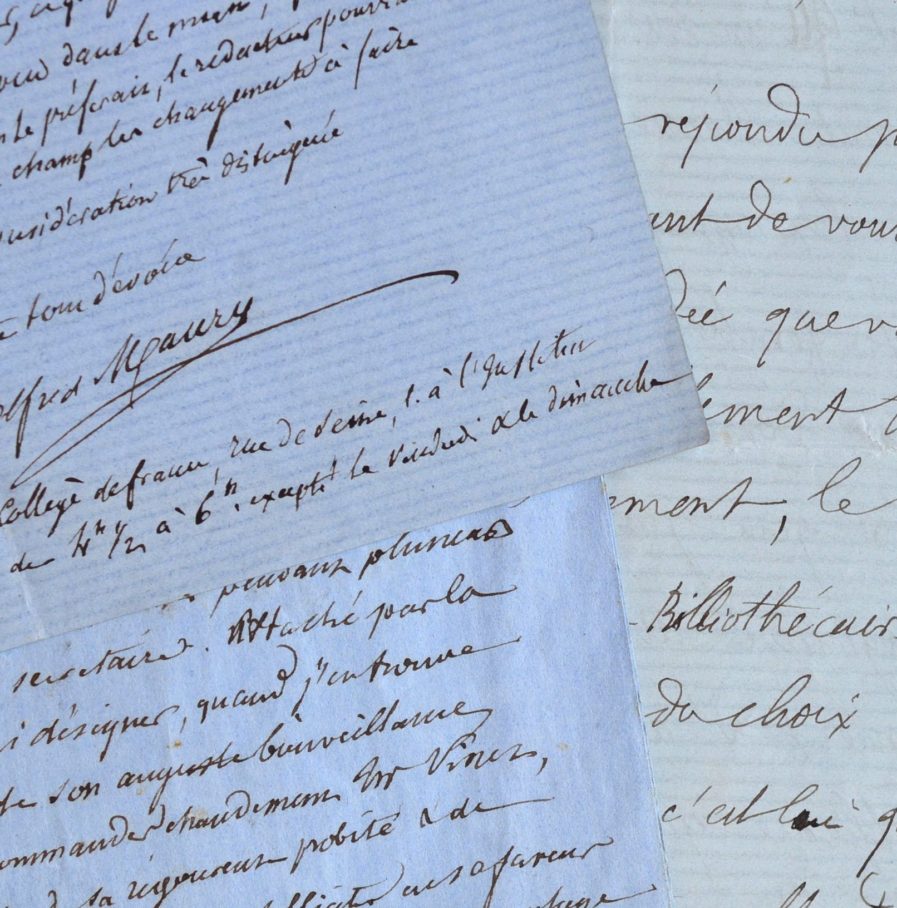 dans le
le préférais, le rédacteur pourra
champ les changements à faire
considération très distinguée
tout dévoué
Alfred Maury
Collège de france, rue de Seine, 1. à l'Institut
de 4h 1/2 à 6h. excepté le vendredi & le dimanche
pendant plusieurs
secrétaires. Attaché par la
désigner, quand j'en trouve
de son auguste bienveillance
chaudement Mr
sa rigoureuse probité & de
faveur
répondu p
ant de vous
que v
lement
ment, le
Bibliothécair
du choix
c'est lui q